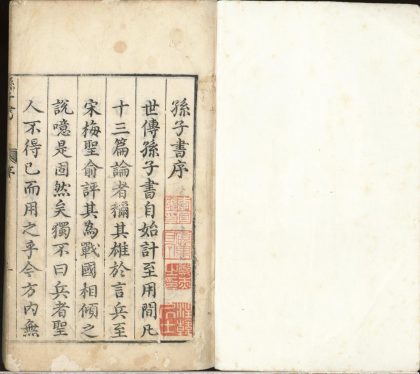 孫子書序
世傳孫子書自始計至用間凡
十三篇論者獮其雄於言兵至
宋梅聖俞評其為戰國相傾之
說噫是固然矣獨不曰兵者聖
人不得已而用之乎今方內無